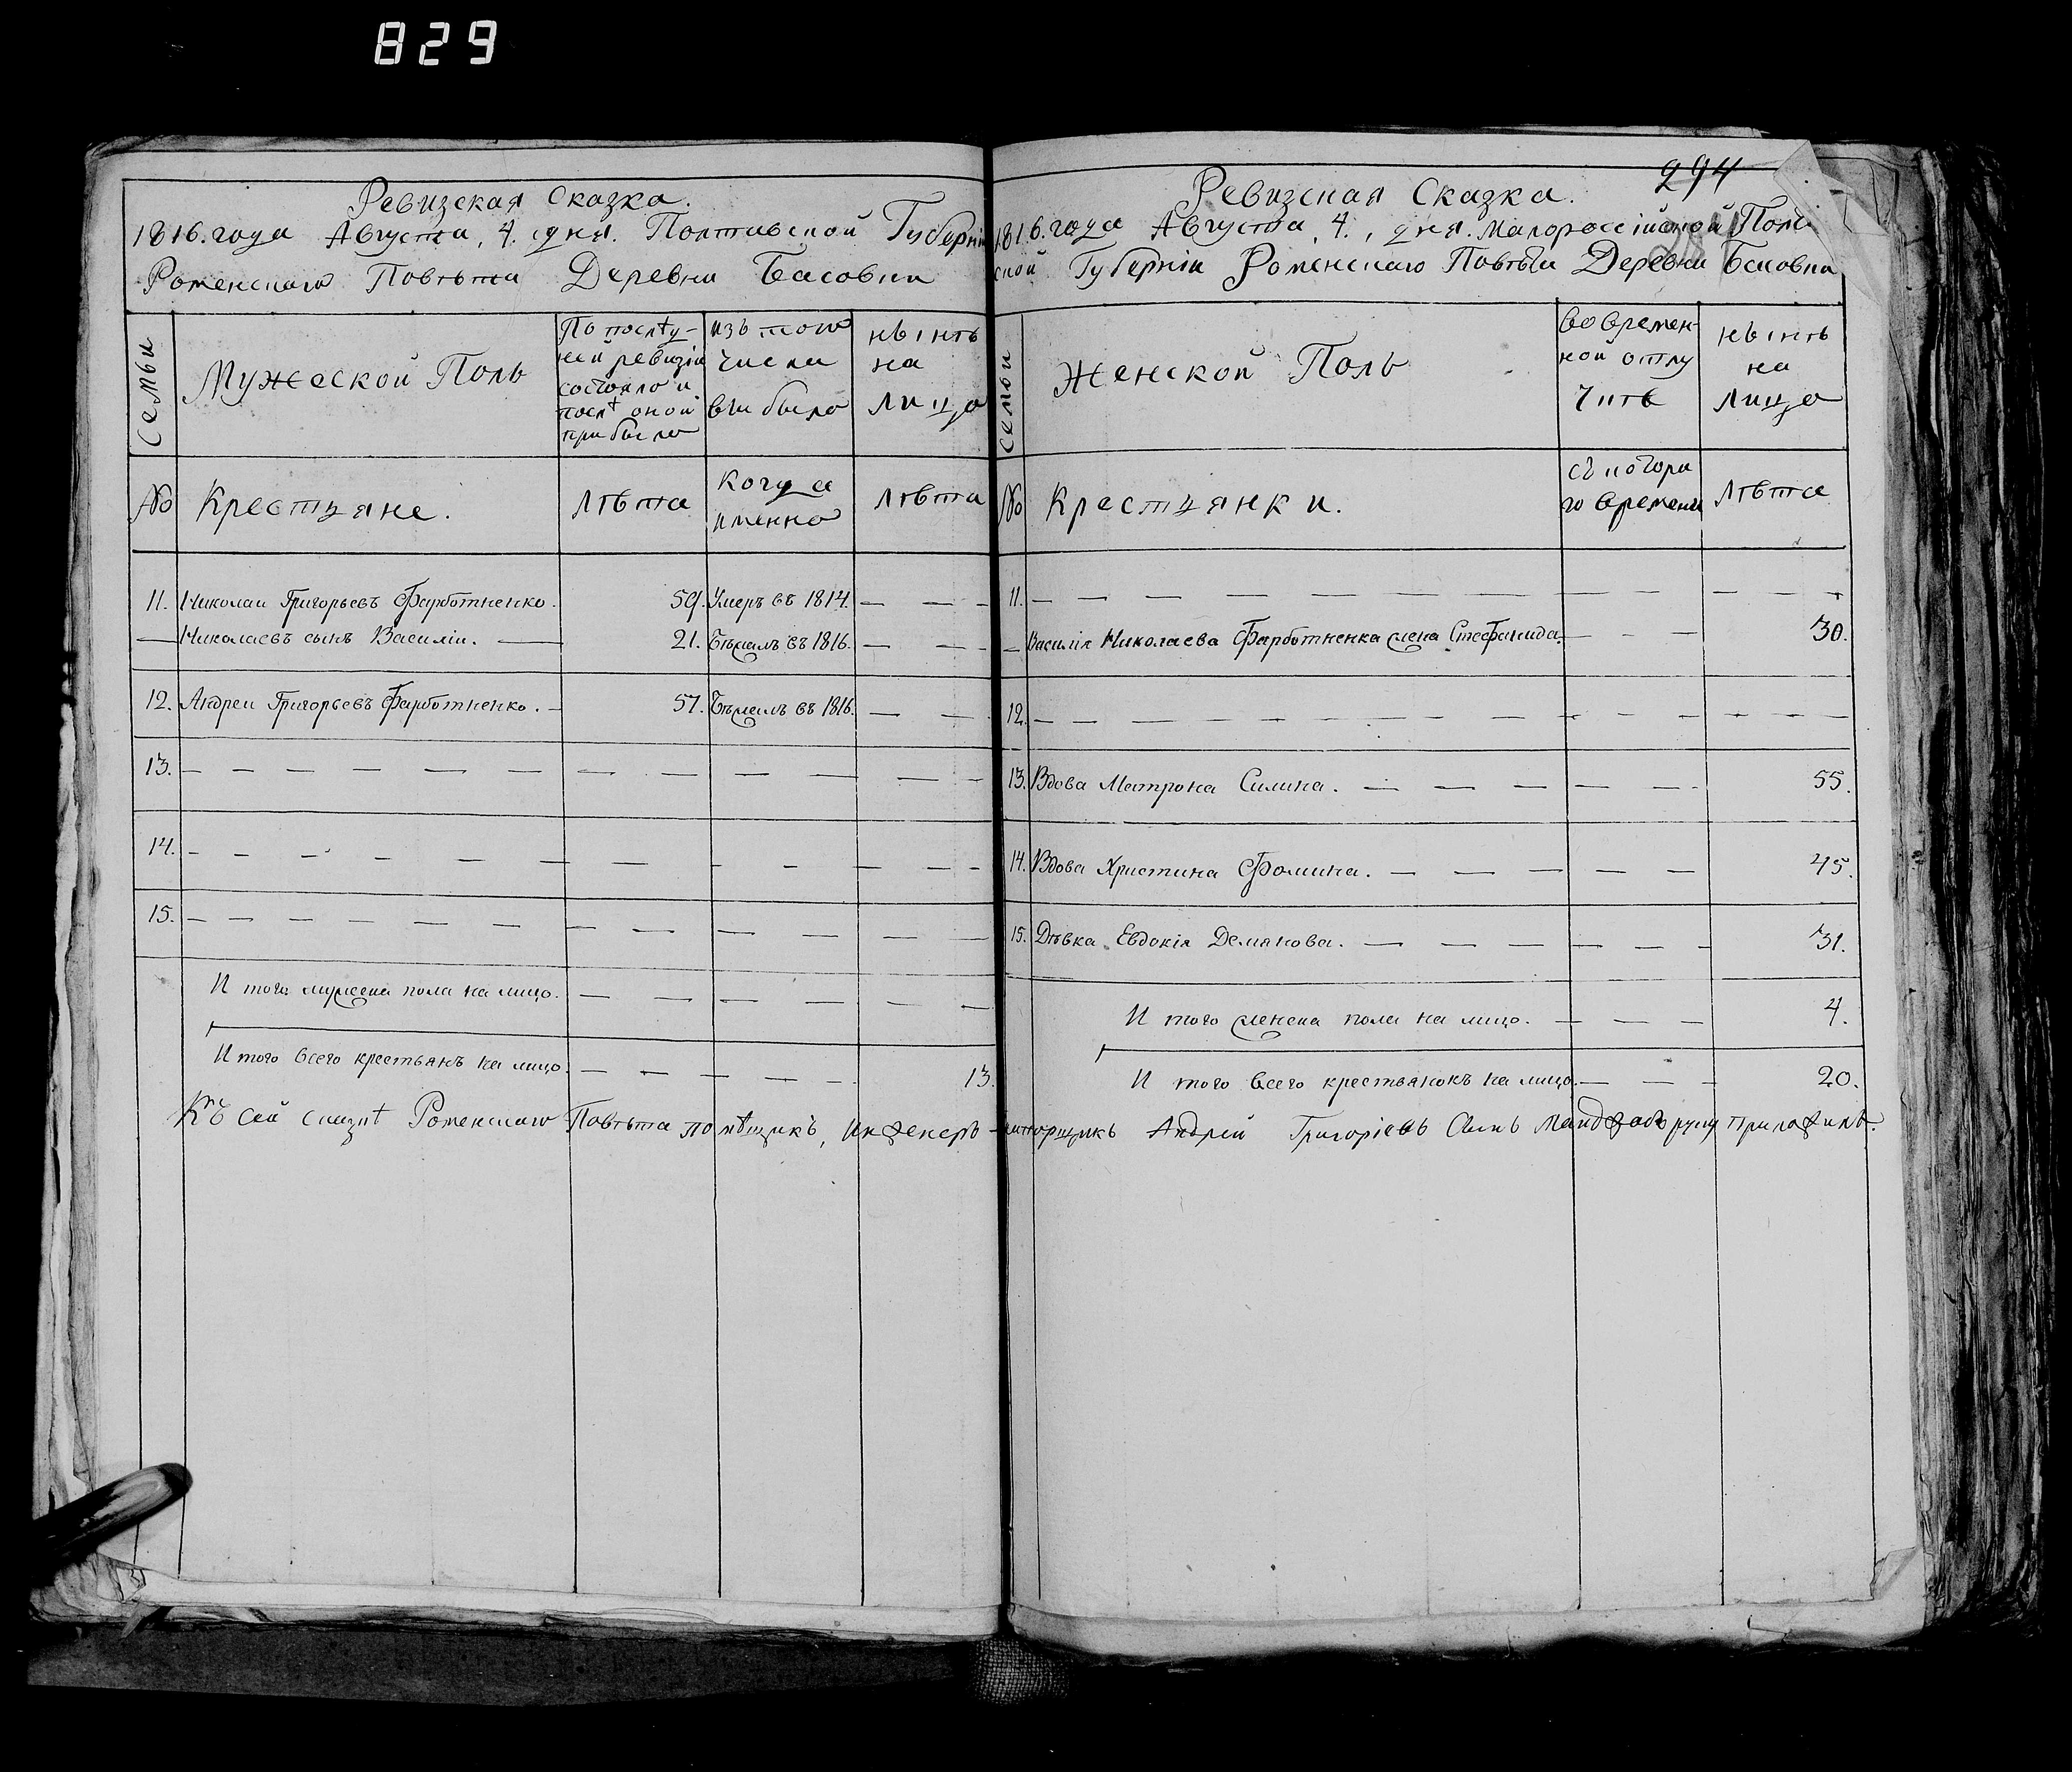 829
Ревизская Сказка.
1816. года Августа, 4. дня. Полтавской Губерніи
Роменского Повѣта Деревни Басовки
Семьи
Мужеской Полъ
По послѣд-
ней ревизіи
состояло и
послѣ оной
прибыло
изъ того
числа
выбыло
нынѣ
на
лицо
№
Крестьяне.
лѣта
когда
именно
лѣта
11. Николаи Григорьевъ Фарботненко. 59. Умеръ въ 1814. — — —
— Николаевъ сынъ Василіи. — 21. Бѣжалъ въ 1816. — — —
12. Андреи Григорьевъ Фарботненко. — 57. Бѣжалъ въ 1816. — —
13. — — — — — — — — — — — —
14. — — — — — — — — — — — —
15. — — — — — — — — — — — —
И того мужеска пола на лицо. — — — — — —
И того всего крестьянъ на лицо. — — — — — 13.
Къ сей сказкѣ Роменского Повѣта помѣщикъ, Инженеръ-
294
Ревизская Сказка.
1816. года Августа, 4., дня. Малороссійской Полтав
ской Губерніи Роменскаго Повѣта Деревни Басовки
Семьи
Женской Полъ
во времен-
ной отлу
чкѣ
нынѣ
на
лицо
№
Крестьянки.
съ котора
го времени
лѣта
11. — — — — — — — — — — — —
— Василія Николаева Фарботненка жена Стефанида. — — — 30.
12. — — — — — — — — — — — —
13. Вдова Матрона Силина. — — — — — 55.
14. Вдова Христина Фомина. — — — — — 45.
15. Дѣвка Евдокія Демянова. — — — — — — 31.
И того женска пола на лицо. — — — 4.
И того всего крестьянокъ на лицо. — — — 20.
Андрей Григоріевъ Сынъ руку приложилъ.